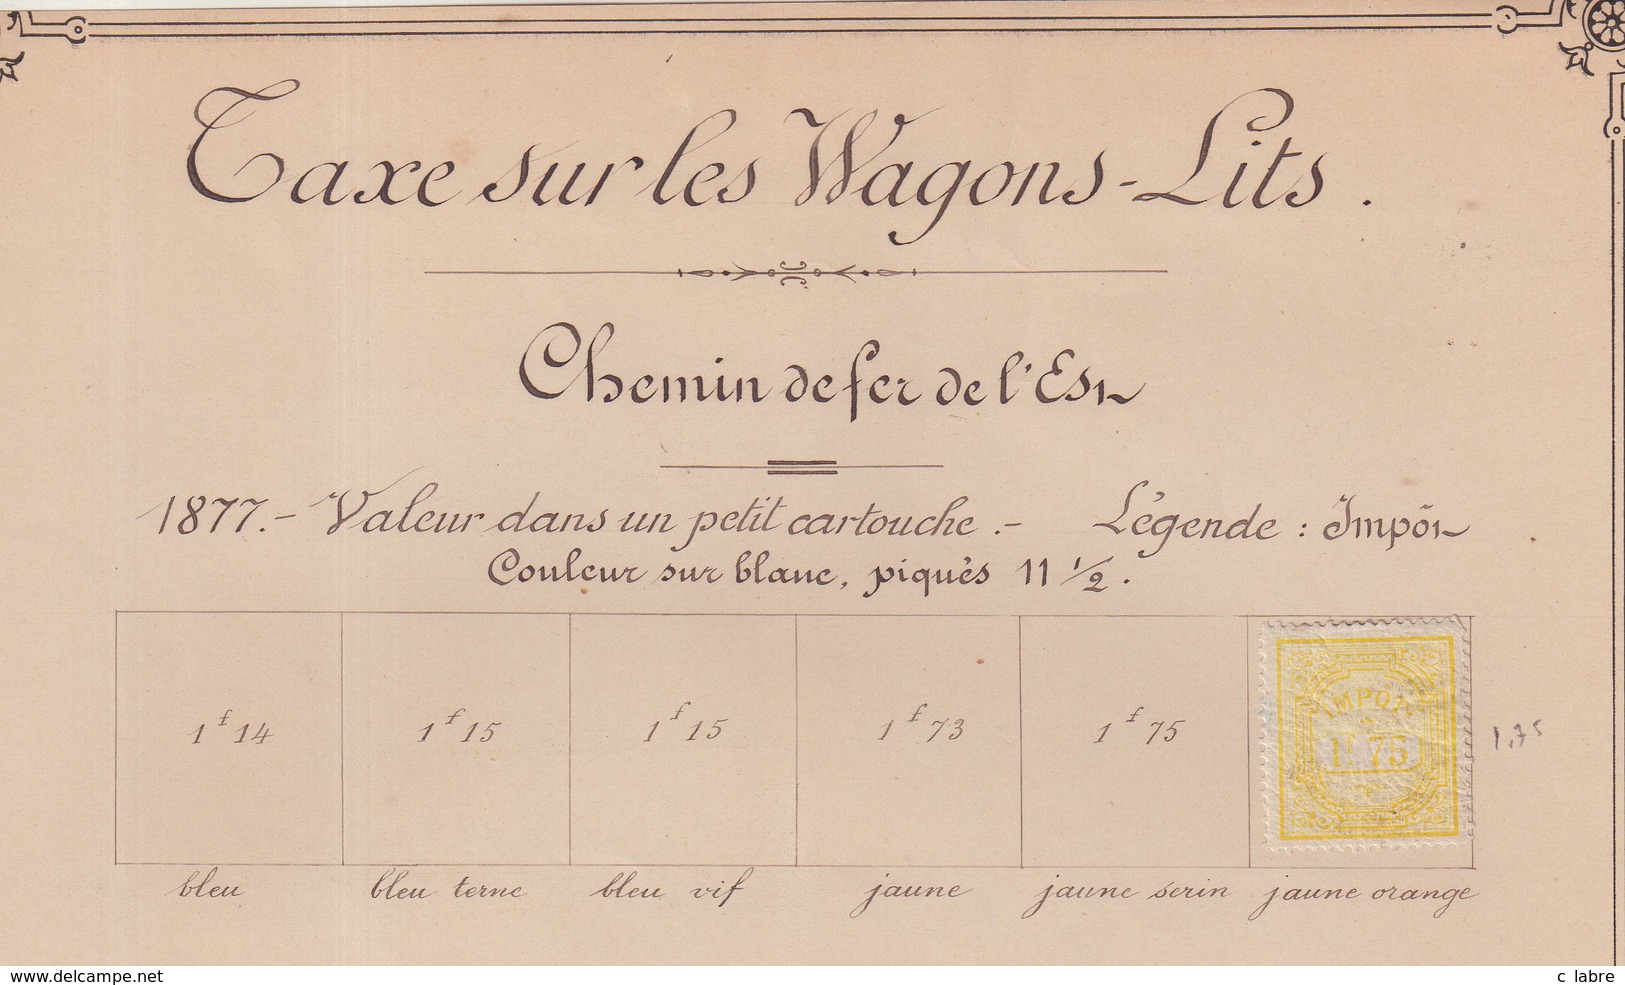 Taxe sur les Wagons-Lits.
Chemin de fer de l'Est
1877.- Valeur dans un petit cartouche.- Légende : Impôt
Couleur sur blanc, piqués 11 1/2.
1f 14 1f 15 1f 15 1f 73 1f 75 IMPOT
1f. 75 1,75
bleu bleu terne bleu vif jaune jaune serin jaune orange
www.delcampe.net c labre